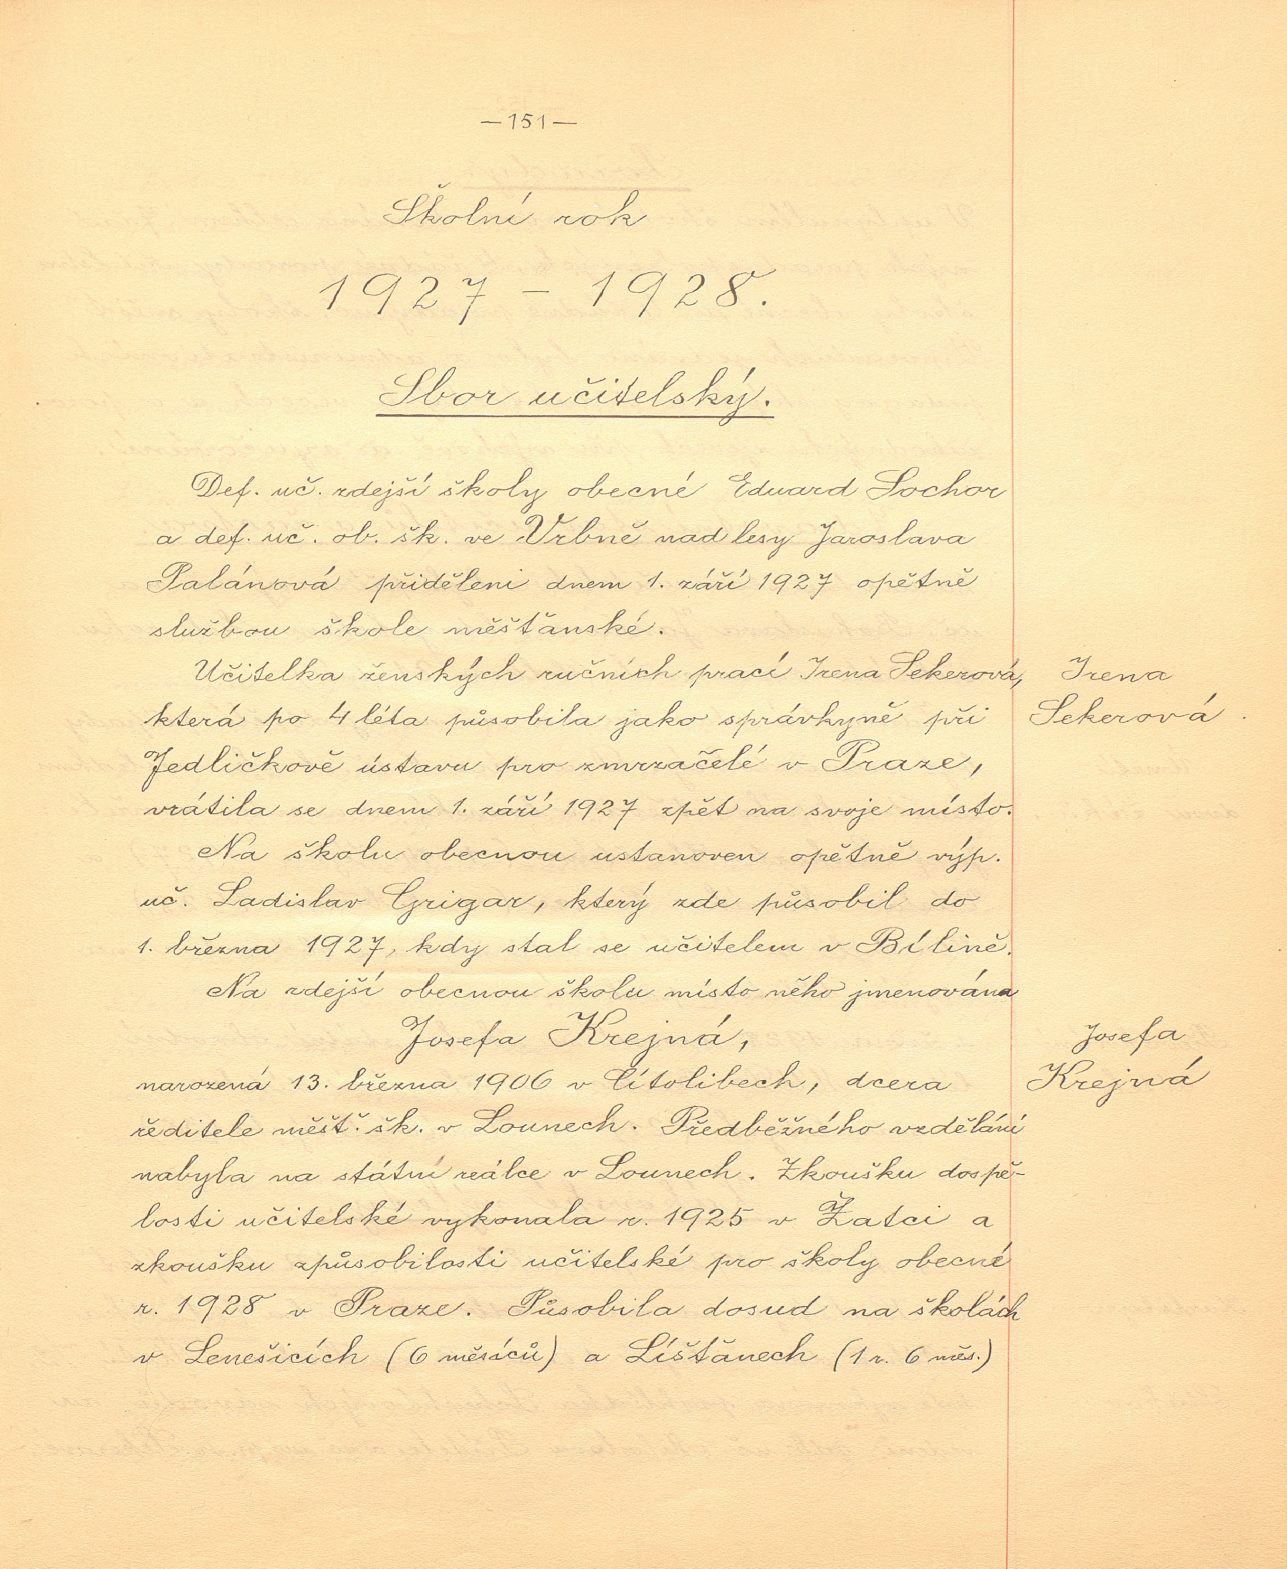 —151—
Školní rok
1927 – 1928.
Sbor učitelský.
Def. uč. zdejší školy obecné Eduard Sochor
a def. uč. ob. šk. ve Vrbně nad lesy Jaroslava
Palánová přiděleni dnem 1. září 1927 opětně
službou škole měšťanské.
Učitelka ženských ručních prací Irena Sekerová,
Irena
která po 4 léta působila jako správkyně při
Sekerová
Jedličkově ústavu pro zmrzačelé v Praze,
vrátila se dnem 1. září 1927 zpět na svoje místo.
Na školu obecnou ustanoven opětně výp.
uč. Ladislav Grigar, který zde působil do
1. března 1927, kdy stal se učitelem v Bílině.
Na zdejší obecnou školu místo něho jmenována
Josefa Krejná,
Josefa
narozená 13. března 1906 v Cítolibech, dcera
Krejná
ředitele měšť. šk. v Lounech. Předběžného vzdělání
nabyla na státní reálce v Lounech. Zkoušku dospě-
losti učitelské vykonala r. 1925 v Žatci a
zkoušku způsobilosti učitelské pro školy obecné
r. 1928 v Praze. Působila dosud na školách
v Lenešicích (6 měsíců) a Líšťanech (1 r. 6 měs.)